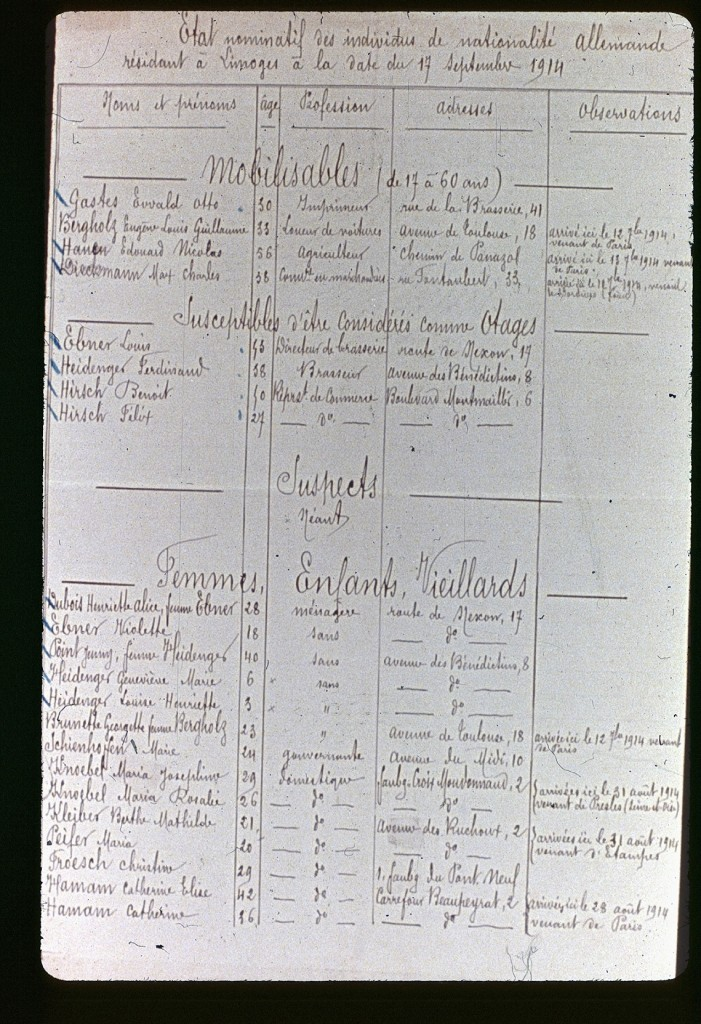 Etat nominatif des individus de nationalité allemande
résidant à Limoges à la date du 17 Septembre 1914
Noms et prénoms âge Profession adresses Observations
Mobilisables (de 17 à 60 ans)
Gastes Ewald Otto 30 Imprimeur rue de la Brasserie, 41
Bergholz Eugène Louis Guillaume 33 Loueur de voitures avenue de Toulouse, 18 arrivé ici le 12 7bre 1914, venant de Paris
Hanen Edouard Nicolas 56 Agriculteur chemin de Panazol arrivé ici le 13 7bre 1914 venant de Paris
Dieckmann Max Charles 38 en marchandises rue Fontaubert, 33, arrivé ici le 1914, venant
Susceptibles d'être Considérés comme Otages
Ebner Louis Directeur de brasserie route de Nexon, 17
Heidenger Ferdinand 38 Brasseur avenue des Bénédictins, 8
Hirsch Benoit Reprst. de Commerce Boulevard Montmailler, 6
Hirsch Félix 27 — do — — do —
Suspects
Néant
Femmes, Enfants, Vieillards
Dubois Henriette Alice, femme Ebner 28 ménagère route de Nexon, 17
Ebner Violette 18 sans — do —
Point Jenny, femme Heidenger 40 sans avenue des Bénédictins, 8
Heidenger Geneviève Marie 6 sans — do —
Heidenger Louise Henriette 3 " — do —
Brunette Georgette femme Bergholz 23 " avenue de Toulouse, 18 arrivée ici le 12 7bre 1914 venant de Paris
Schienhofen Marie 24 gouvernante Avenue du Midi, 10
Knoebel Maria Joséphine 29 domestique faubg. Croix Mouvonnaud, 2 arrivées ici le 31 août 1914
Knoebel Maria Rosalie 26 — do — — do — venant de Presles (Seine et Oise)
Kleiber Berthe Mathilde 21 — do — Avenue des Ruchoux, 2 arrivées ici le 31 août 1914
Peifer Maria 20 — do — — do — venant d'Etampes
Froesch Christine 29 — do — 1, faubg du Pont Neuf
Hamam Catherine Elise 42 — do — Carrefour Beaupeyrat, 2 arrivées ici le 28 août 1914
Hamam Catherine 36 — do — — do — venant de Paris